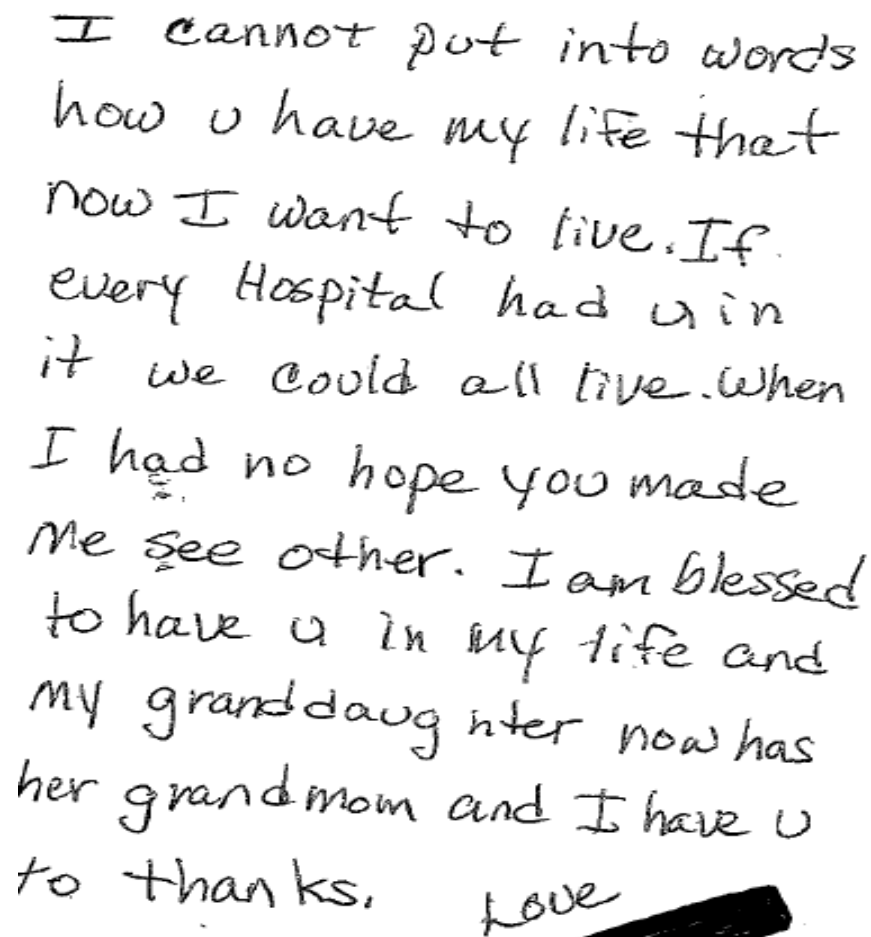 I cannot put into words
how u have my life that
now I want to live. If
every Hospital had u in
it we could all live. When
I had no hope you made
me see other. I am blessed
to have u in my life and
my granddaughter now has
her grandmom and I have u
to thanks. Love